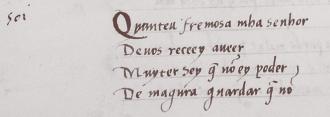 sci Quanteu fremosa mha senhor
De uos receey aueer
Muyter sey q̄ nō ey poder
De magura guardar q̄ nō